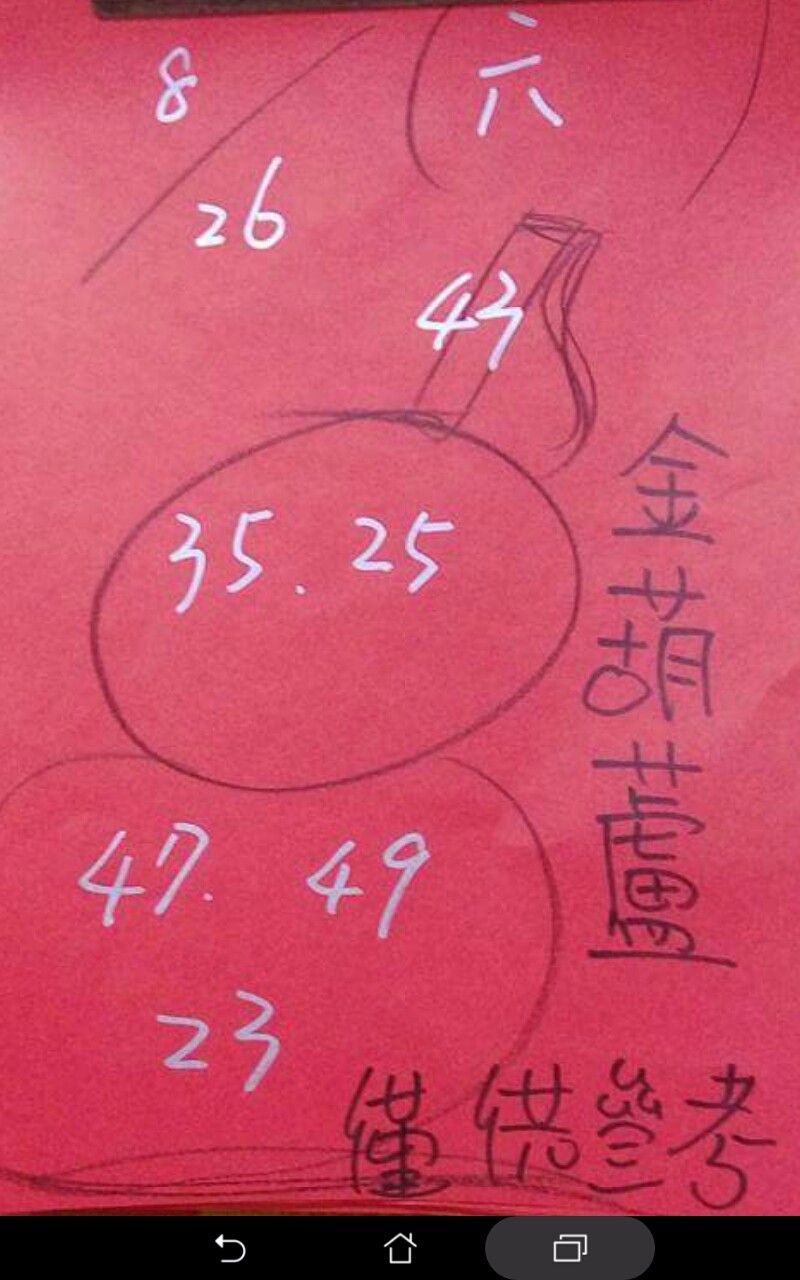 8
六
26
43
35. 25
47. 49
23
金葫蘆
僅供參考